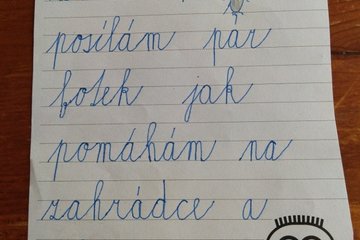 posílám pár
fotek jak
pomáhám na
zahrádce a